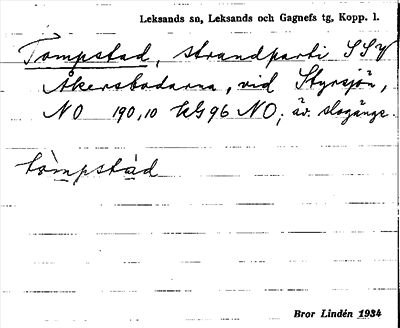 Leksands sn, Leksands och Gagnefs tg, Kopp. l.
Tompstad, strandparti SSV
Åkersbodarna, vid Styrsjön,
NO 190,10 KG 96 NO; äv. slogängs.
tòmpstàd
Bror Lindén 1934